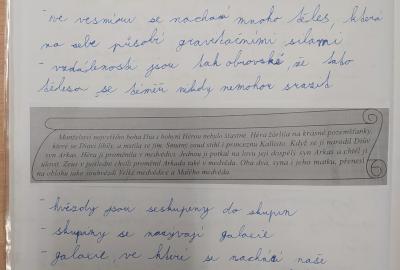 - ve vesmíru se nachází mnoho těles, která
na sebe působí gravitačními silami
- vzdálenosti jsou tak obrovské, že tato
tělesa se téměř nikdy nemohou srazit
Manželství nejvyššího boha Dia s bohyní Hérou nebylo šťastné. Héra žárlila na krásné pozemšťanky,
které se Diovi líbily, a mstila se jim. Smutný osud stihl i princeznu Kallistó. Když se jí narodil Diův
syn Arkas, Héra ji proměnila v medvědici. Jednou ji potkal na lovu její dospělý syn Arkas a chtěl ji
ulovit. Zeus v poslední chvíli proměnil Arkada také v medvěda. Oba dva, syna i jeho matku, přenesl
na oblohu jako souhvězdí Velké medvědice a Malého medvěda.
- hvězdy jsou seskupeny do skupin
- skupiny se nazývají galaxie
- galaxie, ve které se nachází naše